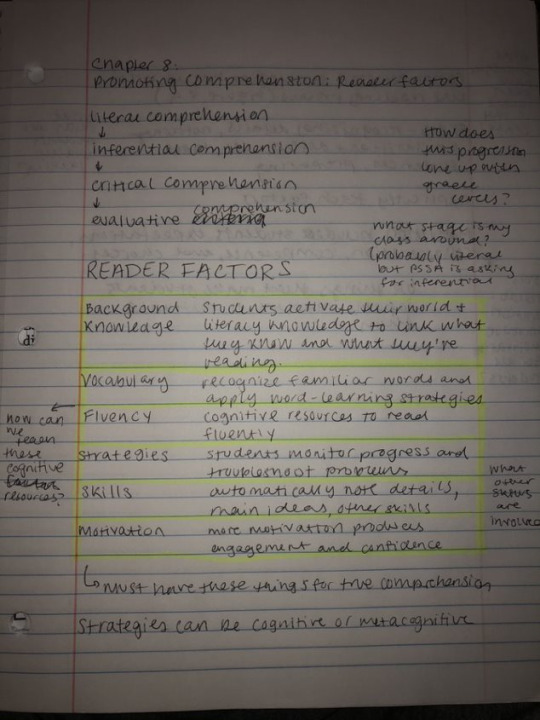 Chapter 8:
Promoting Comprehension: Reader factors
literal comprehension
↓
inferential comprehension
↓
critical comprehension
↓
comprehension
evaluative
How does
this progression
line up with
grade
levels?
What stage is my
class around?
(probably literal
but PSSA is asking
for inferential
READER FACTORS
Background students activate their world +
Knowledge literacy knowledge to link what
they know and what they're
reading.
Vocabulary recognize familiar words and
apply word-learning strategies
Fluency cognitive resources to read
fluently
strategies students monitor progress and
troubleshoot problems
Skills automatically note details,
main ideas, other skills
Motivation more motivation produces
engagement and confidence
how can
we
teach
these
cognitive
resources?
what
other
are
involved
↳ must have these things for true comprehension
Strategies can be cognitive or metacognitive